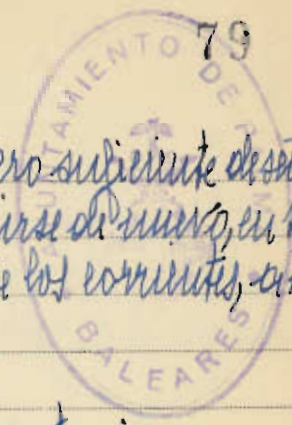 79
AYUNTAMIENTO DE
BALEARES
ero suficiente de se
irse de nuevo, en
e los corrientes, a